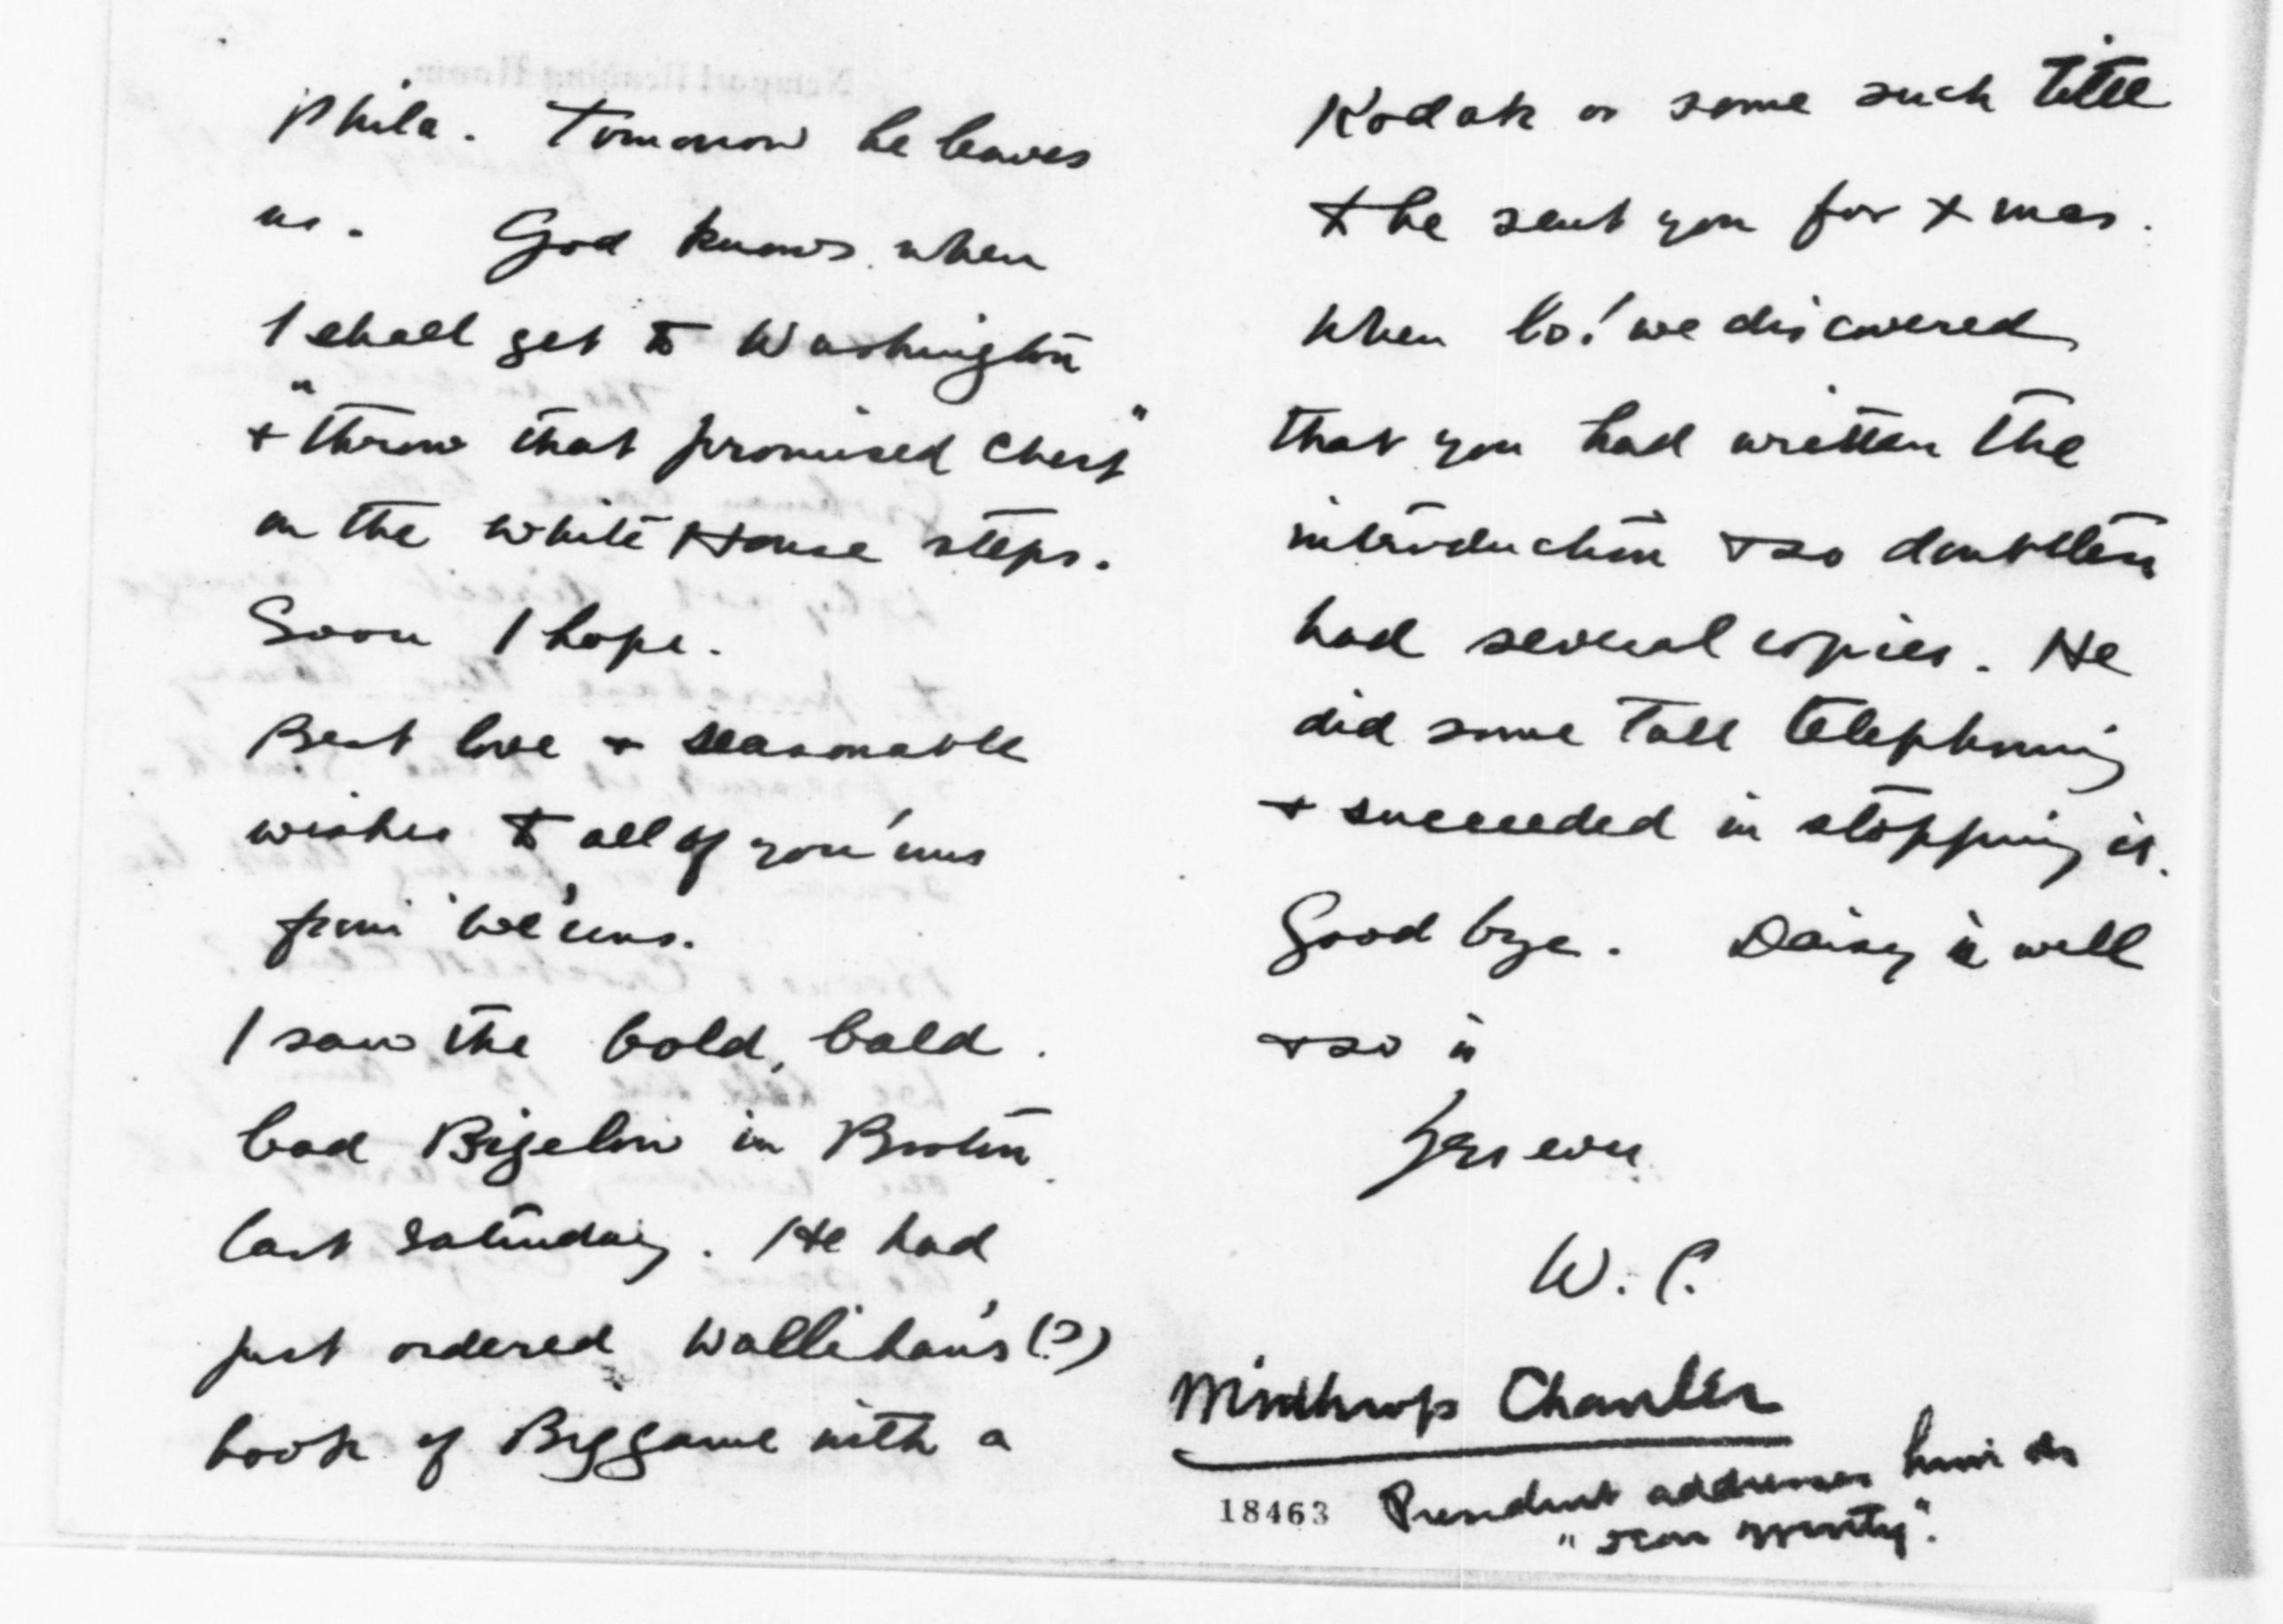 Phila. Tomorrow he leaves
us. God knows when
I shall get to Washington
& "throw that promised chest"
on the White House steps.
Soon I hope.
Best love & seasonable
wishes to all of you'uns
from we'uns.
I saw the bold, bald
bad Bigelow in Boston
last Saturday. He had
just ordered Wallihan's (?)
book of Big game with a
Kodak or some such title
to be sent you for Xmas.
When lo! we discovered
that you had written the
introduction & so doubtless
had several copies. He
did some tall telephoning
& succeeded in stopping it.
Good bye. Daisy is well
& so is
Yrs ever
W. C.
Winthrop Chanler
18463 President addresses him as
"Dear Winty".